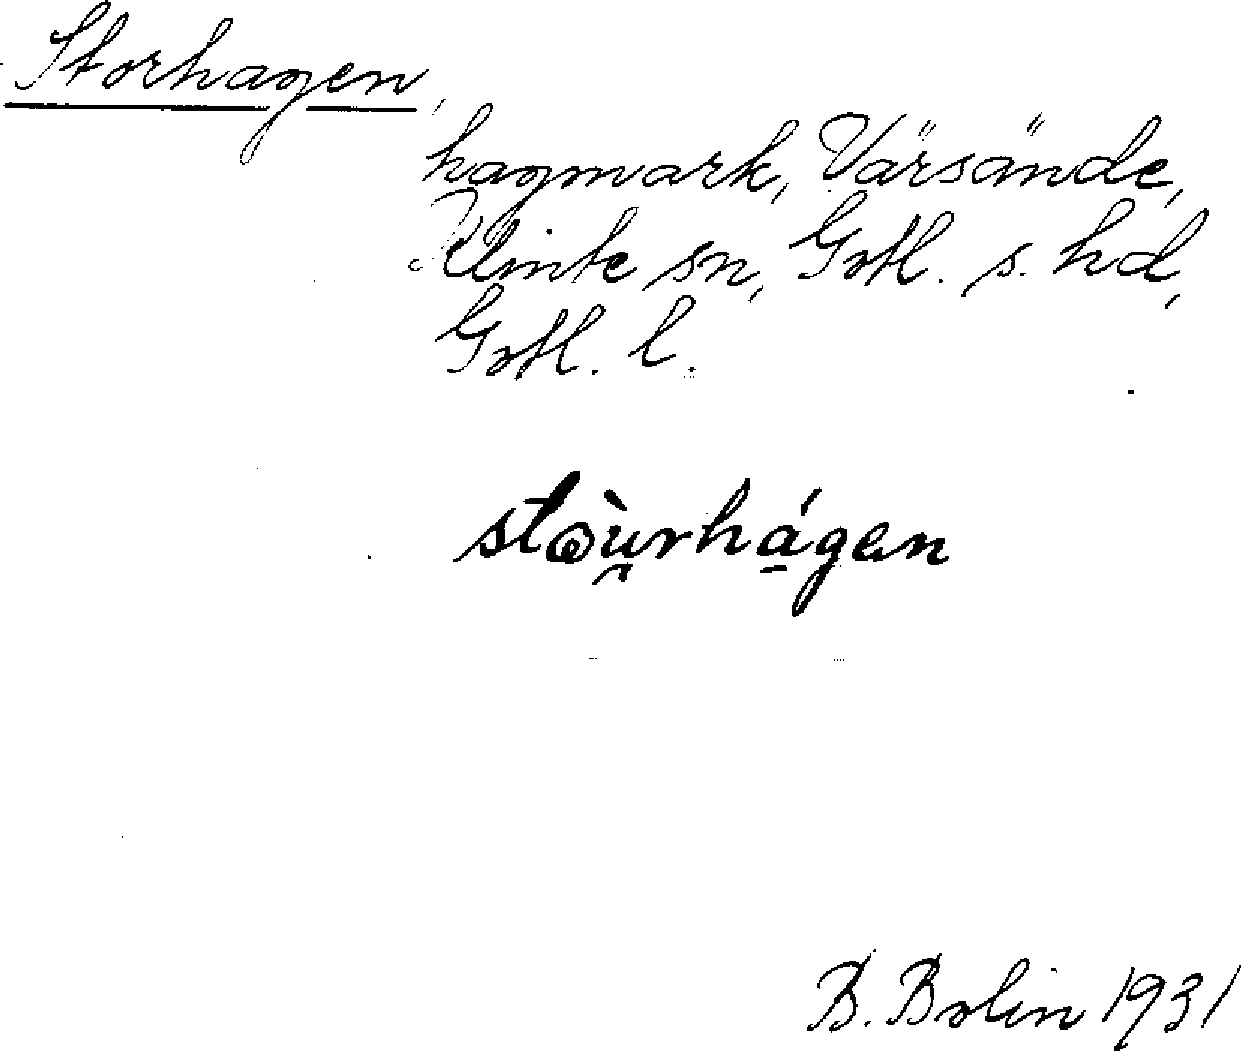 Storhagen,
hagmark, Värsände,
Klinte sn, Gotl. s. hd,
Gotl. l.
stòu̯rhá̱gen
B. Bolin 1931